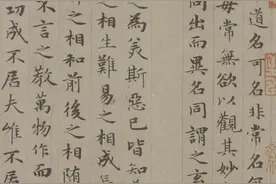 道名可名非常名
母常無欲以觀其妙
同出而異名同謂之玄
之為美斯惡已皆知
之相生難易之相成
之相和前後之相随
不言之教萬物作而
功成不居夫唯不居